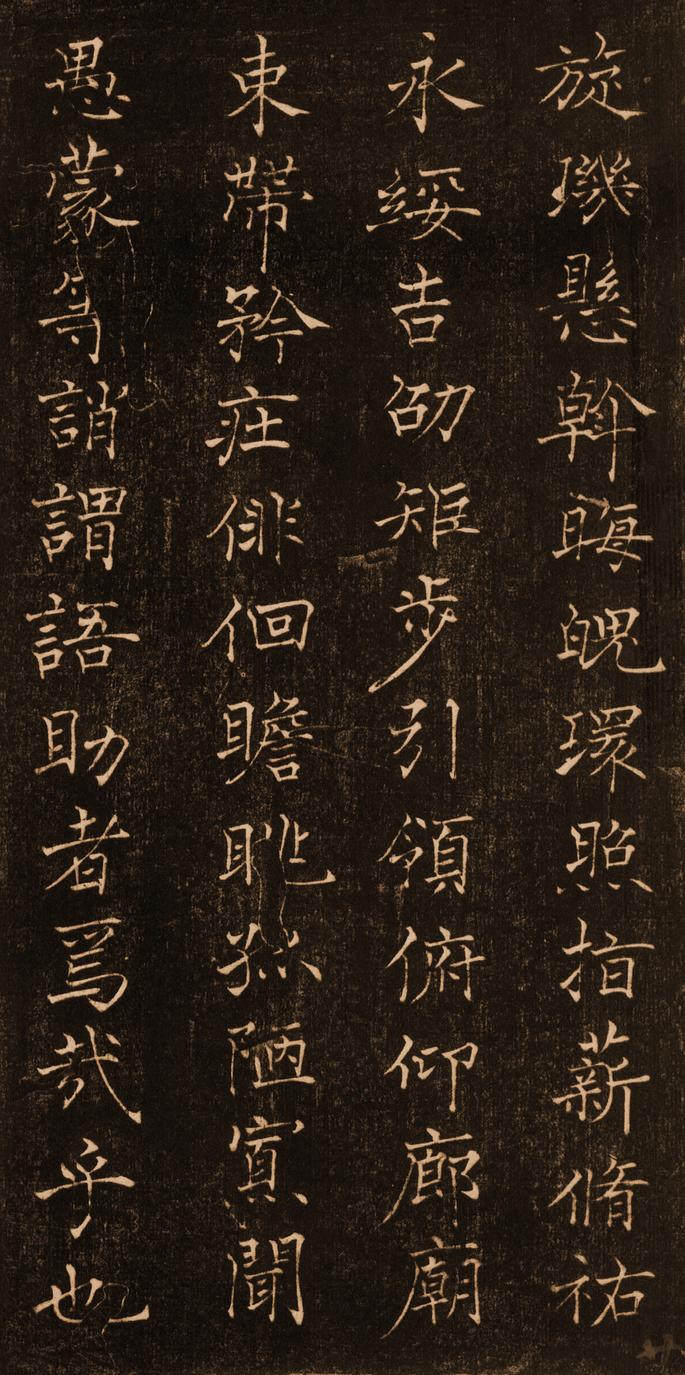 旋璣懸斡晦魄環照指薪脩祜
永綏吉劭矩步引領俯仰廊廟
束帶矜莊俳佪瞻眺孤陋寡聞
愚蒙等誚謂語助者焉哉乎也